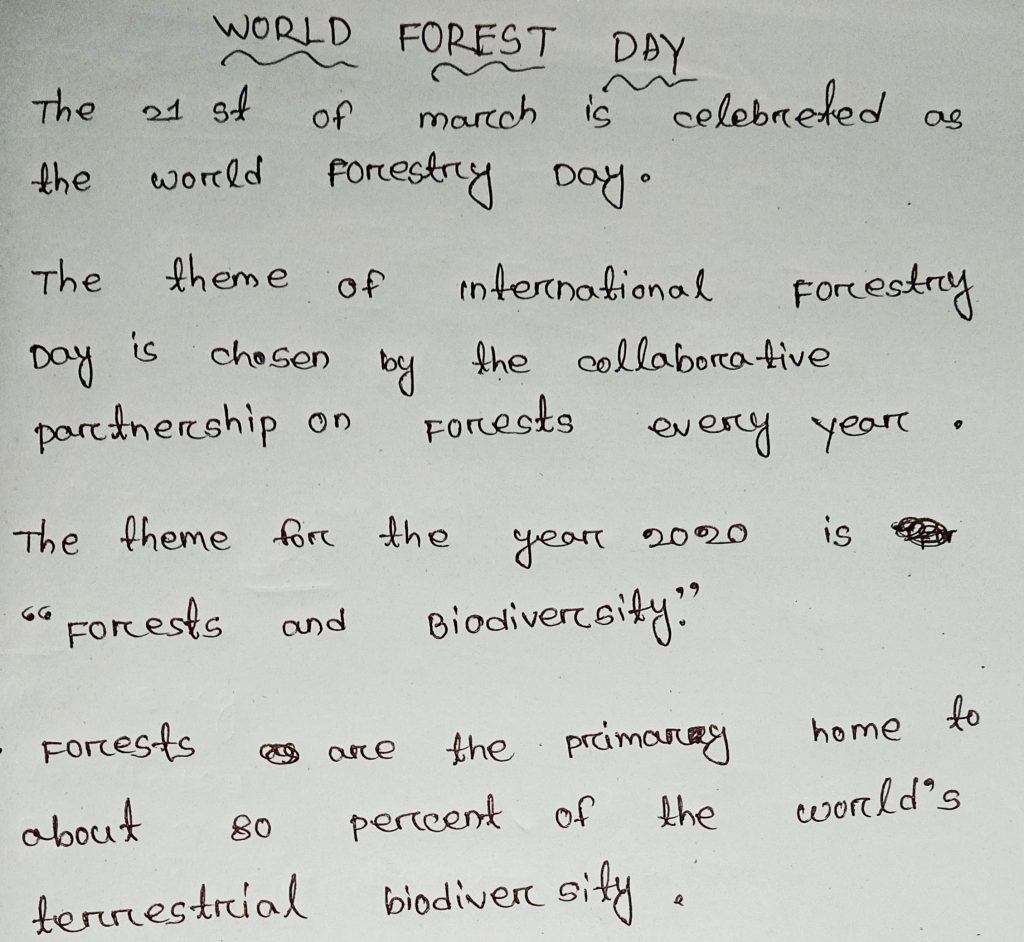 WORLD FOREST DAY
The 21 st of march is celebreted as
the world Forestry Day.
The theme of international Forestry
Day is chosen by the collaborative
partnership on Forests every year .
The theme for the year 2020 is
"Forests and Biodiversity."
Forests are the primary home to
about 80 percent of the world's
terrestrial biodiver sity .